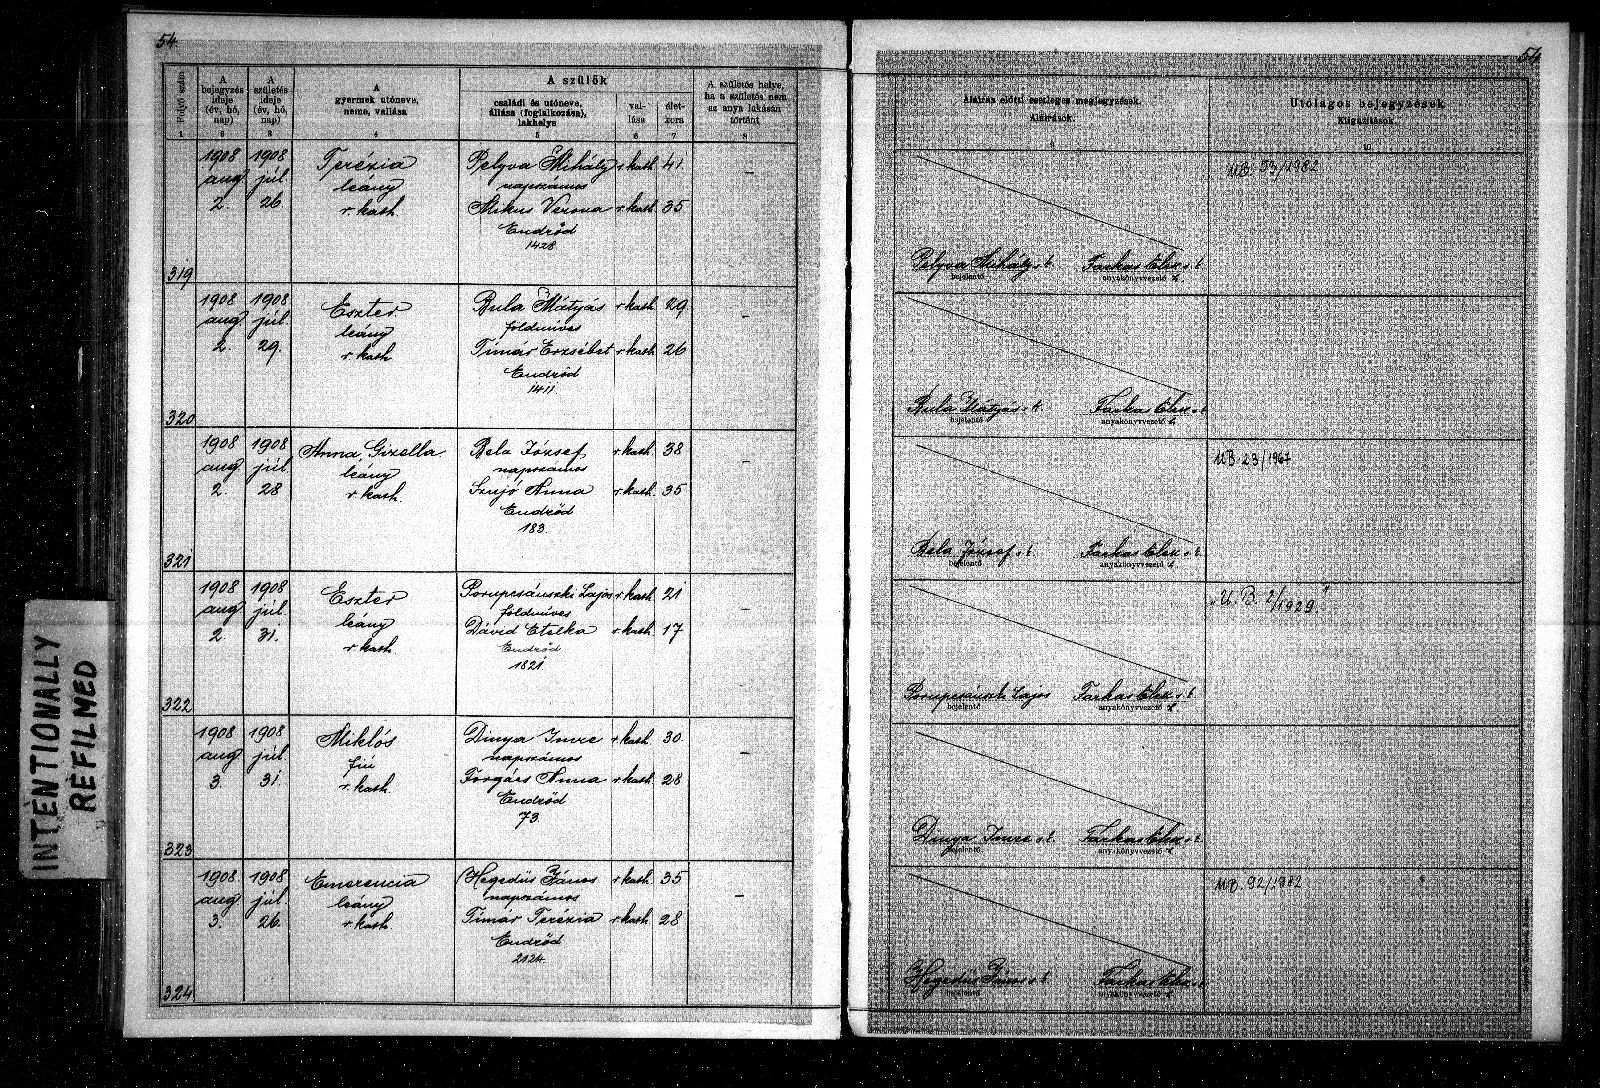 54
54
Folyó szám
A bejegyzés ideje (év, hó, nap)
A születés ideje (év, hó, nap)
A gyermek utóneve, neme, vallása
A szülők
családi és utóneve, állása (foglalkozása), lakhelye
vallása
életkora
A születés helye, ha a születés nem az anya lakásán történt
Aláírás előtti esetleges megjegyzések.
Aláírások.
Utólagos bejegyzések
Kiigazítások.
1 2 3 4 5 6 7 8 9 10
319
1908 aug 2.
1908 júl 26
Terézia
leány
r. kath
Pelyva Mihály r. kath 41
napszámos
Mikus Verona r. kath 35
Endrőd
1428
–
Pelyva Mihály s. k.
bejelentő
Farkas Elek s. k.
anyakönyvvezető h.
UB. 53/1982
320
1908 aug 2.
1908 júl. 29.
Eszter
leány
r. kath
Bula Mátyás r. kath 29
földmíves
Tímár Erzsébet r. kath 26
Endrőd
1411
–
Bula Mátyás s. k.
bejelentő
Farkas Elek s. k.
anyakönyvvezető h.
321
1908 aug 2.
1908 júl 28
Anna, Gizella
leány
r. kath.
Bela József r. kath 38
napszámos
Szujó Anna r. kath. 35
Endrőd
183.
–
Bela József s. k.
bejelentő
Farkas Elek s. k.
anyakönyvvezető h.
UB. 23/1967
322
1908 aug 2.
1908 júl. 31.
Eszter
leány
r. kath.
Porupcsánszki Lajos r. kath 21
földmíves
Dávid Etelka r. kath 17
Endrőd
1821
–
Porupcsánszki Lajos
bejelentő
Farkas Elek s. k.
anyakönyvvezető h.
„U. B. 2/1929.”
323
1908 aug 3.
1908 júl. 31.
Miklós
fiú
r. kath.
Dinya Imre r. kath 30.
napszámos
Forgács Anna r. kath 28
Endrőd
73.
–
Dinya Imre s. k.
bejelentő
Farkas Elek s. k.
anyakönyvvezető h.
324
1908 aug 3.
1908 júl 26.
Emerencia
leány
r. kath.
Hegedüs János r. kath 35
napszámos
Tímár Terézia r. kath 28
Endrőd
2124.
–
Hegedüs János s. k.
bejelentő
Farkas Elek s. k.
anyakönyvvezető h.
UB. 92/1982
INTENTIONALLY
REFILMED